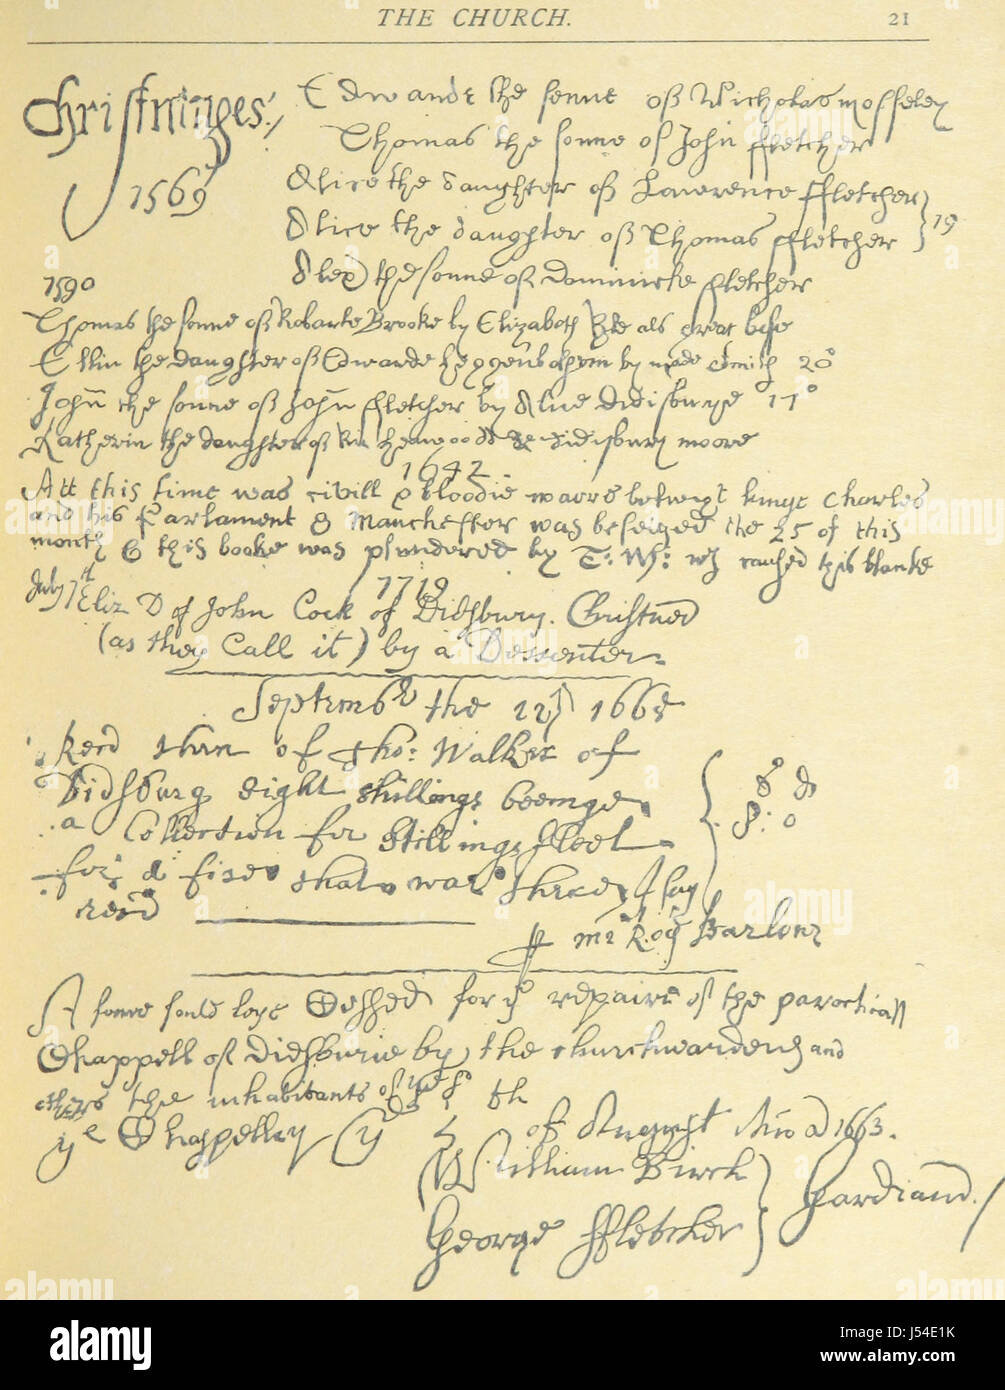 THE CHURCH. 21
Christninges:/
1569
Edwarde the sonne off Nicholas mosseley
Thomas the sonne of John ffletcher
Alice the daughter off Lawerence ffletcher
Alice the daughter off Thomas ffletcher } 19
Alex) the sonne off Dominicke ffletcher
1590
Thomas the sonne off Robarte Brooke by Elizabeth als great besse
Ellin the daughter off Edwarde by made Smith 20°
John the sonne off John ffletcher by Alice didisburye 17°
Katherin the daughter off heawoodd de didisbury moore
1642
Att this time was civill & bloodie warrs betwixt kinge Charles
and his Parlament & Manchester was beseiged the 25 of this
month & this booke was plundered by T: W: wh caused this blanke
1719
July 7th Eliz D of John Cock of Didsbury. Christned
(as they Call it) by a Dessenter.
Septemb the 12 1665
Recd then of Tho: Walker of
Didsburg eight shillings beeinge
a Collection for Stillingsfleet
for a fire that was there I say
recd
s d
8: 0
mr Rog Barlour
A sowe sould laye Sessed for ye repaire of the parochiall
Chappell of Didsburie by the churchwardens and
others the inhabitants of
ye Chappellry th of August Ano d 1663.
William Birch
George ffletcher } Gardians./
alamy
J54E1K